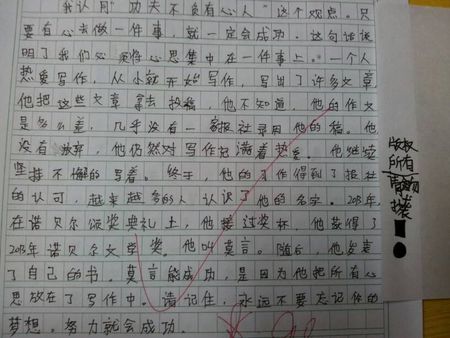 我认同"功夫不负有心人"这个观点。只
要有心去做一件事，就一定会成功。这句话说
明了我们必须将心思集中在一件事上。一个人
热爱写作，从小就开始写作，写出了许多文章
他把这些文章拿去投稿，他不知道，他的作文
是多么差，几乎没有一家报社录用他的稿。他
没有放弃，他仍然对写作充满着热爱。他继续
坚持不懈的写着。终于，他的工作得到了报社
的认可，越来越多的人认识了他的名字。2013年
在诺贝尔颁奖典礼上，他接过奖杯，他获得了
2013年诺贝尔文学奖。他叫莫言。随后，他发表
了自己的书。莫言能成功，是因为他把所有心
思放在了写作中。请记住，永远不要忘记你的
梦想。努力就会成功。
版权
所有
请勿